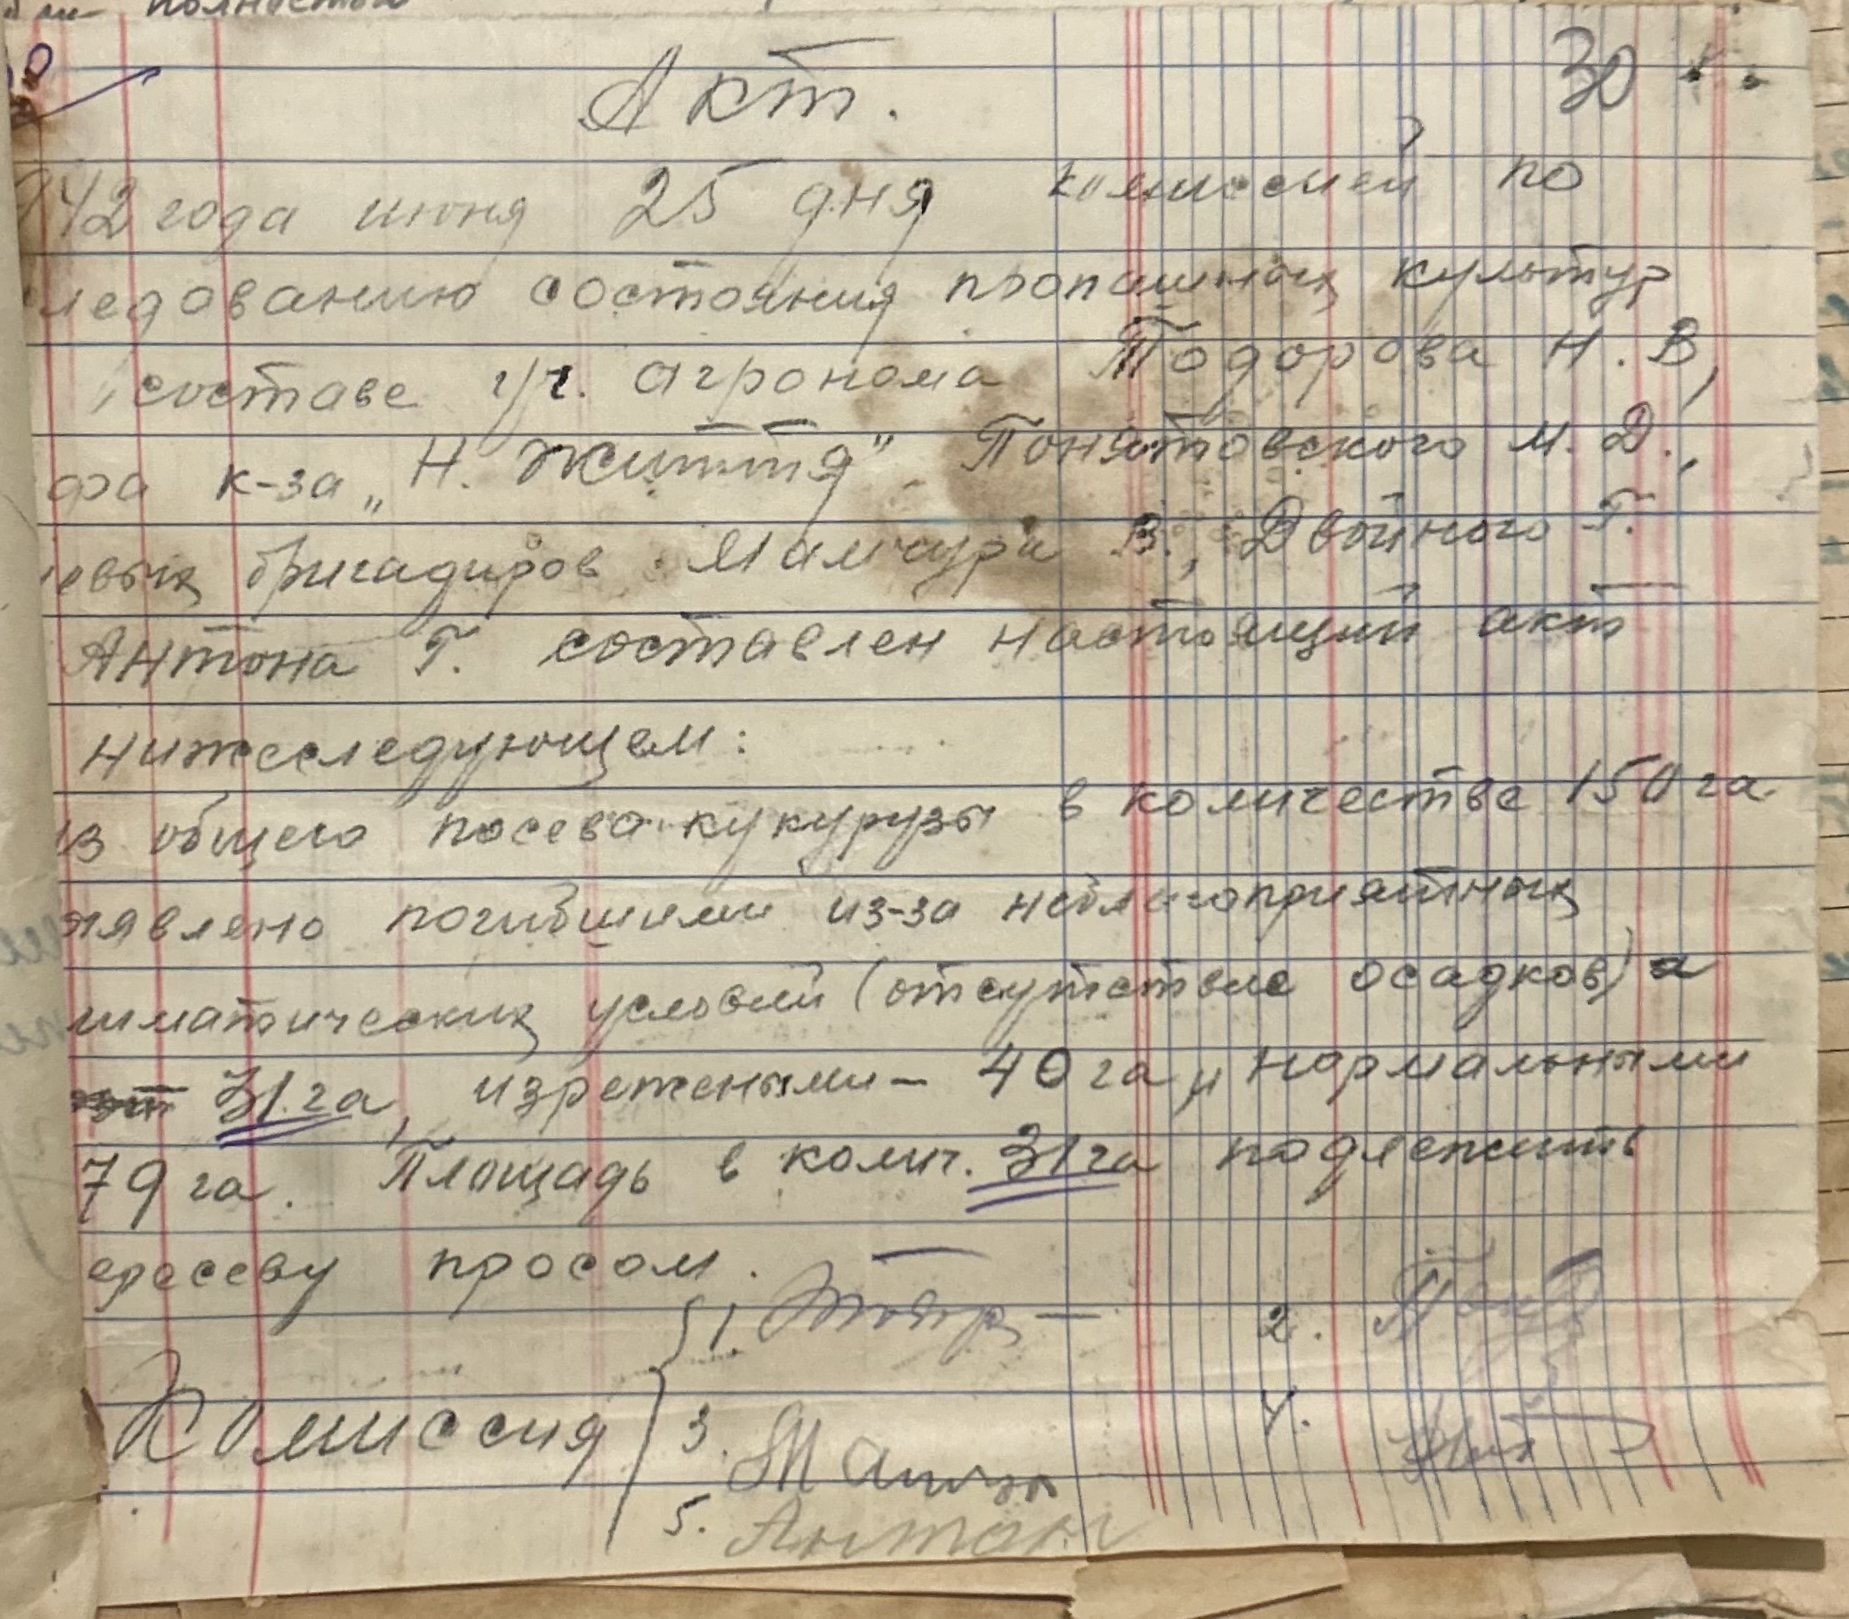 полностью
Акт. 30
942 года июня 25 дня комиссией по
ледованию состояния пропашных культур
составе уч. агронома Тодорова Н. В,
ора к-за „Н. Життя" Понятовского М. Д.,
евых бригадиров Мамчура В., Двойного Г.
Антона Г. составлен настоящий акт
нижеследующем:
из общего посева кукурузы в количестве 150 га
явлено погибшими из-за неблагоприятных
иматических условий (отсутствие осадков) а
31 га, изрежеными - 40 га, и нормальными
79 га. Площадь в колич. 31 га подлежить
ересеву просом.
1. 2.
Комиссия 3. 4.
5. Антон